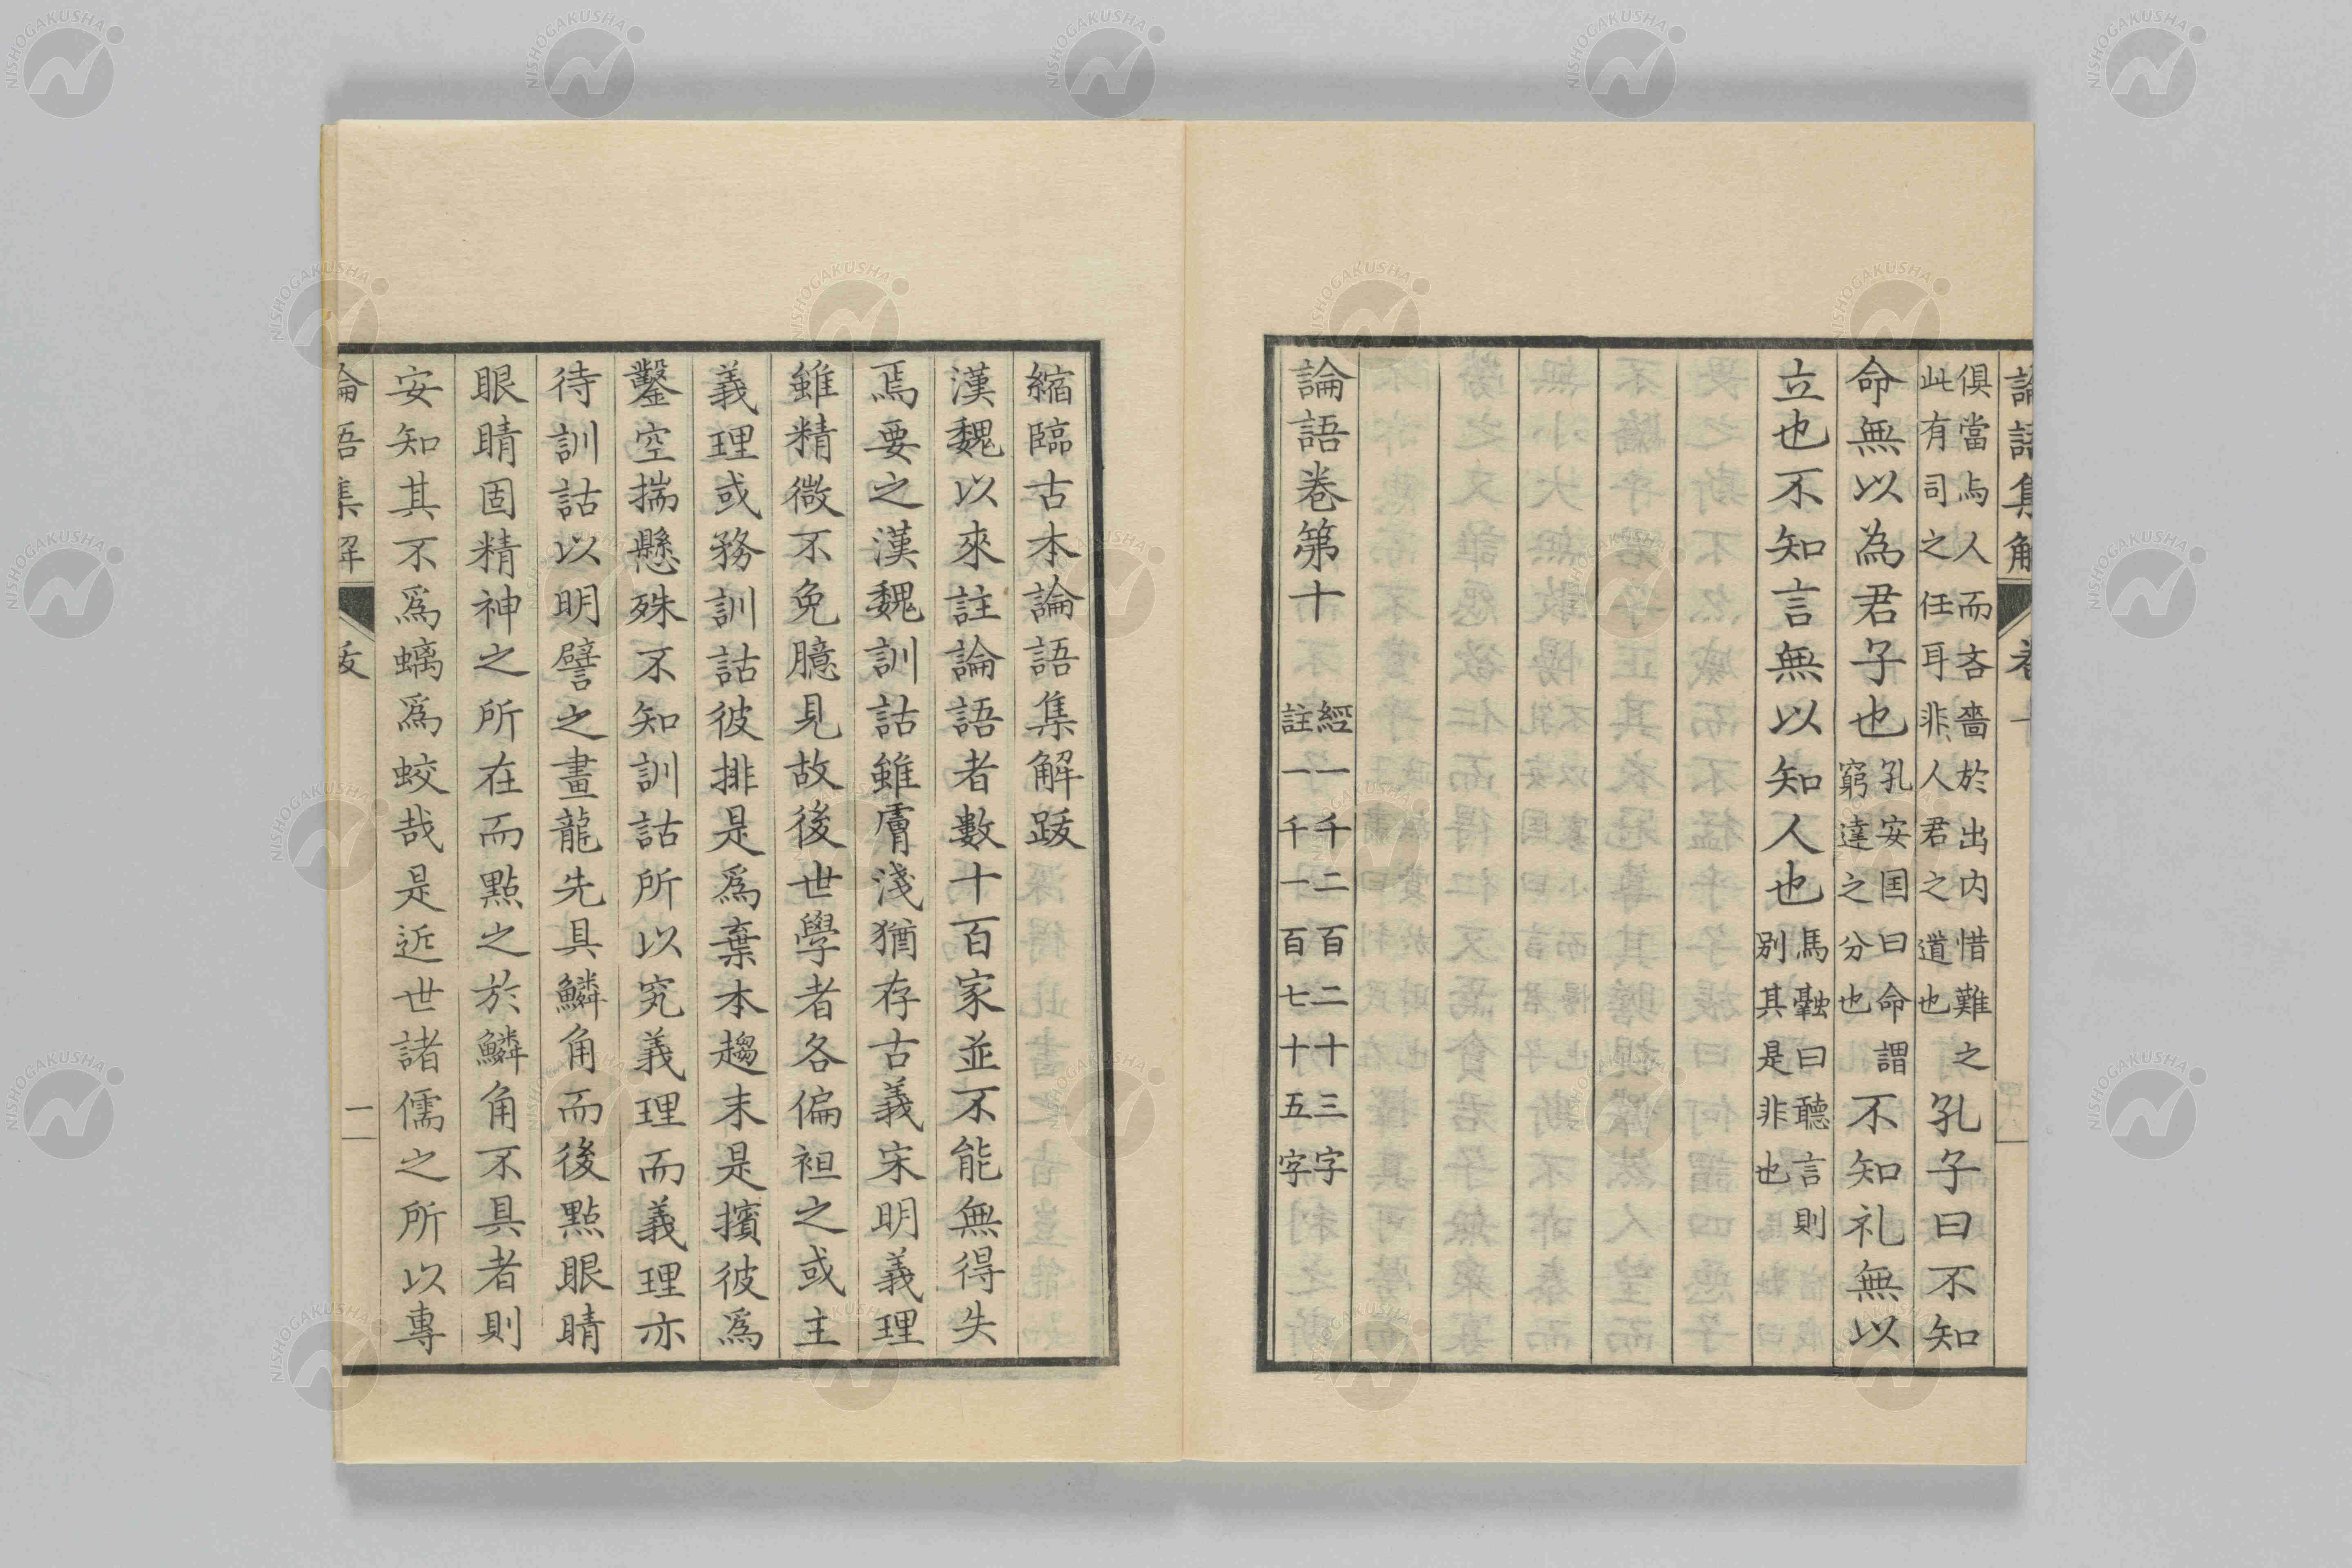 論語集解 卷十
俱當与人而吝嗇於出内惜難之
此有司之任耳非人君之道也
孔子曰不知
命無以為君子也
孔安国曰命謂
窮達之分也
不知礼無以
立也不知言無以知人也
馬融曰聽言則
別其是非也
論語卷第十
經一千二百二十三字
註一千一百七十五字
縮臨古本論語集解跋
漢魏以來註論語者數十百家並不能無得失
焉要之漢魏訓詁雖膚淺猶存古義宋明義理
雖精微不免臆見故後世學者各偏袒之或主
義理或務訓詁彼排是爲棄本趨末是擯彼爲
鑿空揣懸殊不知訓詁所以究義理而義理亦
待訓詁以明譬之畫龍先具鱗角而後點眼睛
眼睛固精神之所在而點之於鱗角不具者則
安知其不爲螭爲蛟哉是近世諸儒之所以專
論語集解 跋 一
NISHOGAKUSHA